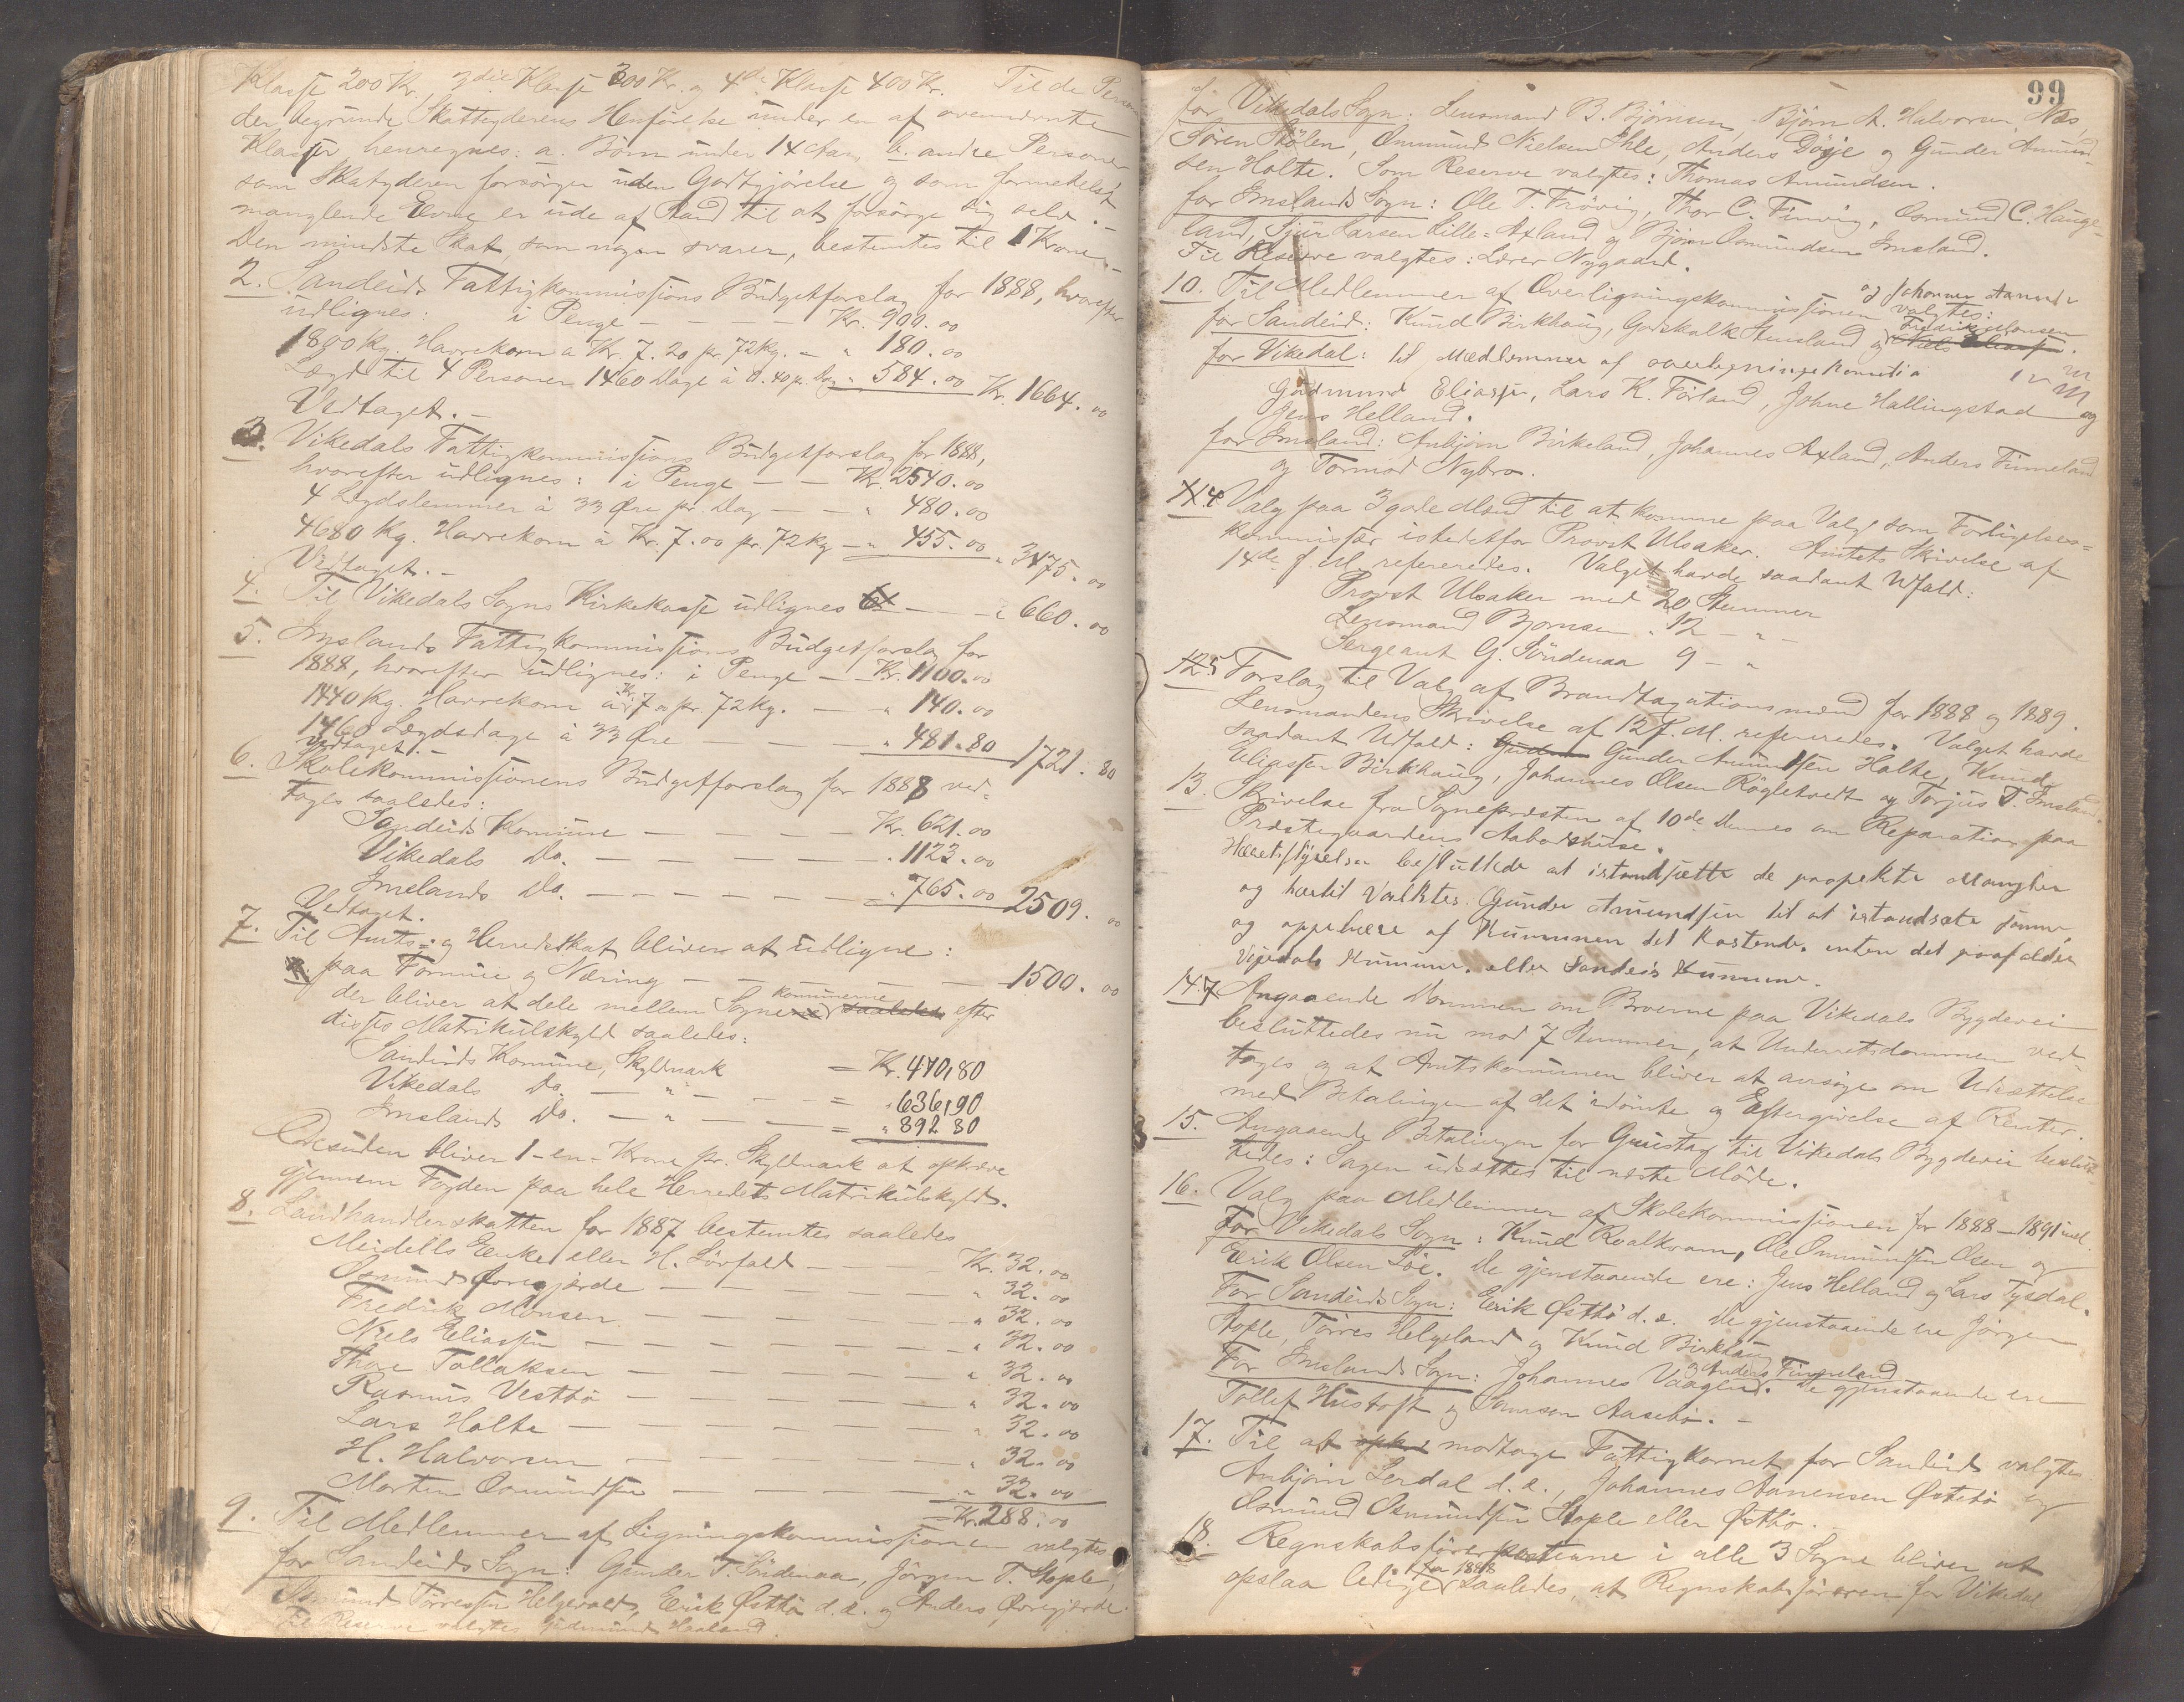 Klasse 200 Kr., 3die Klasse 300 Kr. og 4de Klasse 400 Kr. Til de Perso
der begrunde Skatteyderens Henførelse under en af ovennævnte
Klasser henregnes: a. Børn under 14 Aar. b. andre Personer
som Skatyderen forsørger uden Godtgjørelse og som formedelst
manglende Evne er ude af Stand til at forsørge sig selv.-
Den mindste Skat, som nogen svarer, bestemtes til 1 Krone.-
2. Sandeids Fattigkommissions Budgetforslag for 1888, hvorefter
udlignes: i Penge - - - - Kr. 900.00
1800 Kg. Havrekorn a Kr. 7.20 pr. 72 Kg. - " 180.00
Lægd til 4 Personer 1460 Dage à 0.40 pr. Dag " 584.00 Kr. 1664.00
Vedtaget.-
3. Vikedals Fattigkommissions Budgetforslag for 1888,
hvorefter udlignes: i Penge - - Kr. 2540.00
4 Lægdslemmer à 33 Øre pr. Dag - - " 480.00
4680 Kg. Havrekorn à Kr. 7.00 pr. 72 Kg - " 455.00 " 3475.00
Vedtaget.-
4. Til Vikedals Sogns Kirkekasse udlignes - - " 660.00
5. Imslands Fattigkommissions Budgetforslag for
1888, hvorefter udlignes: i Penge - Kr. 1100.00
1440 Kg. Havrekorn à Kr. 7 " pr. 72 Kg. - " 140.00
1460 Lægdsdage à 33 Øre - - - " 481.80 1721.80
Vedtaget.-
6. Skolekommissionens Budgetforslag for 1888 ved-
tages saaledes:
Sandeids Komune - - - - Kr. 621.00
Vikedals Do. - - - - - " 1123.00
Imslands Do. - - - - - " 765.00 2509.00
Vedtaget.
7. Til Amts- og Herredskat bliver at udligne:
paa Formue og Næring - - - - 1500.00
der bliver at dele mellem Sognekomunerne saaledes efter
disses Matrikulskyld saaledes:
Sandeids Komune, Skyldmark = Kr. 470,80
Vikedals Do. - " - - = " 636,90
Imslands Do. - " - - = " 892 80
Desuden bliver 1 - en - Krone pr. Skyldmark at opkræve
gjennem Fogden paa hele Herredets Matrikulskyld.
8. Landhandlerskatten for 1887 bestemtes saaledes
Meidells Enke eller H. Lövfald - - - Kr. 32.00
Osmund Øvregjerde - - - - " 32.00
Fredrik Monsen - - - - " 32.00
Niels Eliassen - - - - " 32.00
Thore Tollaksen - - - - " 32.00
Rasmus Vestbø - - - - " 32.00
Lars Holte - - - - " 32.00
H. Halvorsen - - - - " 32.00
Morten Osmundsen - - - - " 32.00
Kr. 288.00
9. Til Medlemmer af Ligningskommissionen valgtes
for Sandeids Sogn: Gunder T. Söndenaa, Jörgen T. Stople,
Osmund Tørressen Helgevold, Eerik Østbø d.æ. og Anders Øvregjerde.
Til Reserve valgtes Gudmund Haaland.
99
for Vikedals Sogn: Lensmand B. Bjørnsen, Bjørn A. Halvorsen Næs,
Søren Stølen, Ommund Nielsen Ihle, Anders Döije og Gunder Amund-
sen Holte. Som Reserve valgtes: Thomas Amundsen.
for Imslands Sogn: Ole T. Frøvig, Thor C. Finvig, Osmund C. Hauge-
land, Sjur Larsen Lille-Axland og Bjørn Osmundsen Imsland.
Til Reserve valgtes: Lærer Nygaard.
10. Til Medlemmer af Overligningskommissionen valgtes:
og Johannes
for Sandeid: Knud Birkhaug, Godskalk Stensland og Fredrik Monsen
for Vikedal: til Medlemmer af
Gudmund Eliassen, Lars K. Førland, Johne Hallingstad og
Jens Helland.
for Imsland: Anbjørn Birkeland, Johannes Axland, Anders Finneland
og Tormod Nybro.
14 Valg paa 3 gode Mænd til at komme paa Valg som Forligelses-
kommissær istedetfor Provst Ulsaker. Amtets Skrivelse af
14de f. M. refereredes. Valget havde saadant Udfald:
Provst Ulsaker med 20 Stemmer
Lensmand Bjørnsen " 12 - " -
Sergeant G. Söndenaa 9 - "
12.5 Forslag til Valg af Brandtaxationsmænd for 1888 og 1889.
Lensmandens Skrivelse af 12 f. M. refereredes. Valget havde
saadant Udfald: Gunder Amundsen Holte, Knud
Eliassen Birkhaug, Johannes Olsen Røgletvedt og Torjus T. Imsland.
13. Skrivelse fra Sognepræsten af 10de dennes om Reparation paa
Præstegaardens Aabodshuse.
Heretsstyrelsen besluttede at istandsætte de paapekte Mangler
og hertil Valktes Gunder Amundsen til at istandsæte samme,
og oppebære af Kummunen det Kostende. enten det paafalder
Vikedals Kumune. eller Sandeis Kumune.
14.7 Angaaende Dommen om Broerne paa Vikedals Bygdevei
besluttedes nu mod 7 Stemmer, at Underretsdommen ved-
tages og at Amtskomunen bliver at ansøge om Udsættelse
med Betalingen af det idømte og Eftergivelse af Renter.
15. Angaaende Betalingen for Grustag til Vikedals Bygdevei beslut-
tedes: Sagen udsættes til næste Møde.
16. Valg paa Medlemmer af Skolekommissionen for 1888-1891 incl.
For Vikedals Sogn: Knud Roalkvam, Ole Ommundsen Olsen og
Eerik Olsen Löe. De gjenstaaende ere: Jens Helland og Lars Tysdal.
For Sandeids Sogn: Eerik Østbø d.æ. De gjenstaaende ere Jörgen
Stople, Tørres Helgeland og Knud Birkhaug
For Imslands Sogn: Johannes Vaagen og Anders Finneland. De gjenstaaende ere
Tollef Hustoft og Samson Aasebø.-
17. Til at modtage Fattigkornet for Sandeid valgtes
Anbjørn Lerdal d.æ., Johannes Aanensen Østebø og
Osmund Osmundsen Stople eller Østbø.-
18. Regnskabsførerposterne i alle 3 Sogne bliver at
opslaa ledige for 1888 saaledes, at Regnskabsføreren for Vikedal